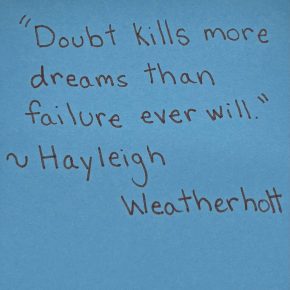 "Doubt kills more
dreams than
failure ever will."
~ Hayleigh
Weatherholt